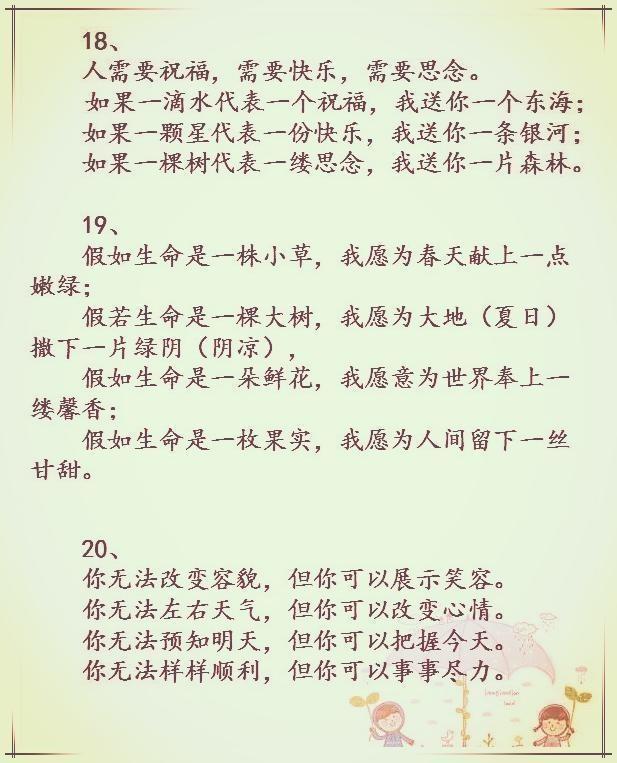 18、
人需要祝福，需要快乐，需要思念。
如果一滴水代表一个祝福，我送你一个东海；
如果一颗星代表一份快乐，我送你一条银河；
如果一棵树代表一缕思念，我送你一片森林。
19、
假如生命是一株小草，我愿为春天献上一点
嫩绿；
假若生命是一棵大树，我愿为大地（夏日）
撒下一片绿阴（阴凉），
假如生命是一朵鲜花，我愿意为世界奉上一
缕馨香；
假如生命是一枚果实，我愿为人间留下一丝
甘甜。
20、
你无法改变容貌，但你可以展示笑容。
你无法左右天气，但你可以改变心情。
你无法预知明天，但你可以把握今天。
你无法样样顺利，但你可以事事尽力。